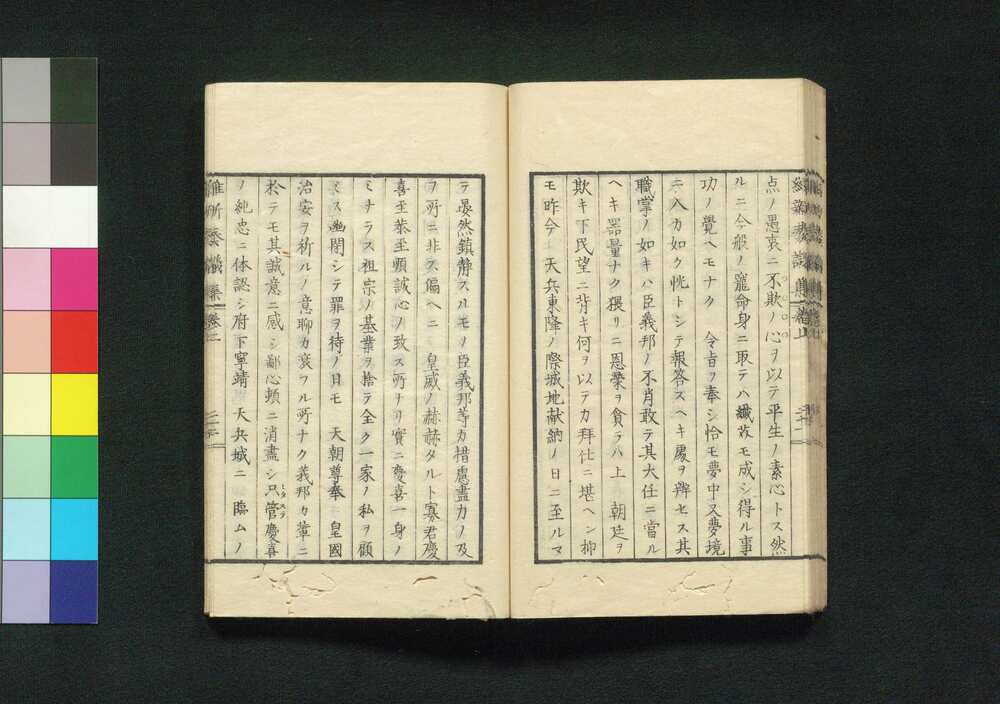 点ノ愚衷ニ不欺ノ心ヲ以テ平生ノ素心トス然
ルニ今般ノ寵命身ニ取テハ纖芥モ成シ得ル事
功ノ覺ヘモナク 令旨ヲ奉シ恰モ夢中又夢境
ニ入カ如ク恍トシテ報答スヘキ處ヲ辨セス其
職掌ノ如キハ臣義邦ノ不肖敢テ其大任ニ當ル
ヘキ器量ナク猥リニ恩榮ヲ貪ラハ上 朝廷ヲ
欺キ下民望ニ背キ何ヲ以テカ拜仕ニ堪ヘン抑
モ昨今 天兵東降ノ際城地献納ノ日ニ至ルマ
テ晏然鎮静スルモノ臣義邦等カ措慮盡力ノ及
フ所ニ非ス偏ヘニ 皇威ノ赫赫タルト寡君慶
喜至恭至順誠心ノ致ス所ナリ實ニ慶喜一身ノ
ミナラス祖宗ノ基業ヲ捨テ全ク一家ノ私ヲ顧
ミス幽閉シテ罪ヲ待ノ日モ 天朝尊奉 皇國
治安ヲ祈ルノ意聊カ衰フル所ナク義邦カ輩ニ
於テモ其誠意ニ感シ鄙心頓ニ消盡シ只管慶喜
ノ純忠ニ体認シ府下寧靖 天兵城ニ 臨ムノ